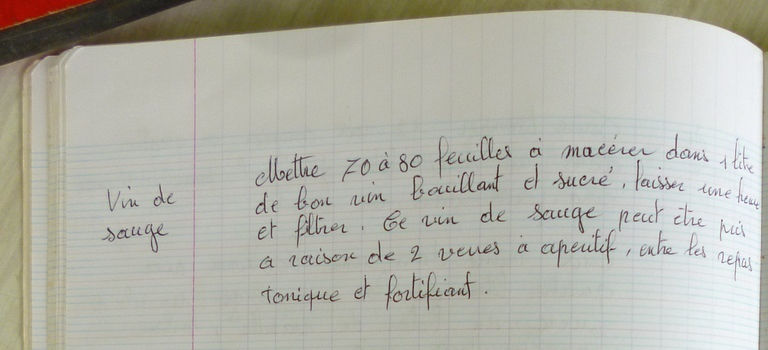 Vin de
sauge
Mettre 70 à 80 feuilles à macérer dans 1 litre
de bon vin bouillant et sucré, laisser une heure
et filtrer. Ce vin de sauge peut être pris
a raison de 2 verres à apéritif, entre les repas
tonique et fortifiant.